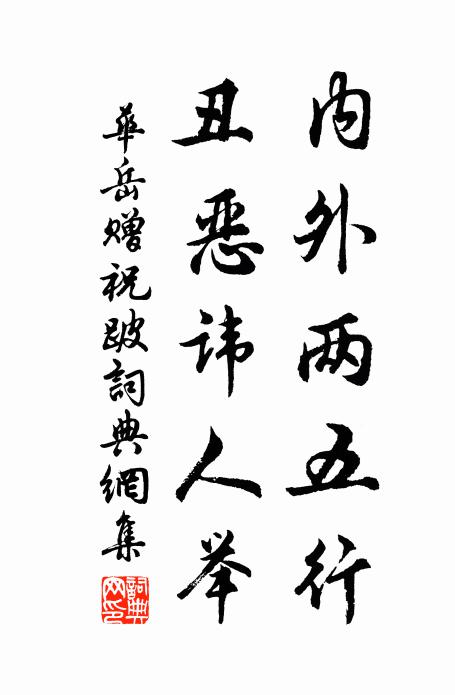 内外两五行
丑恶讳人举
華岳赠祝跛詞典網集
詞典网印